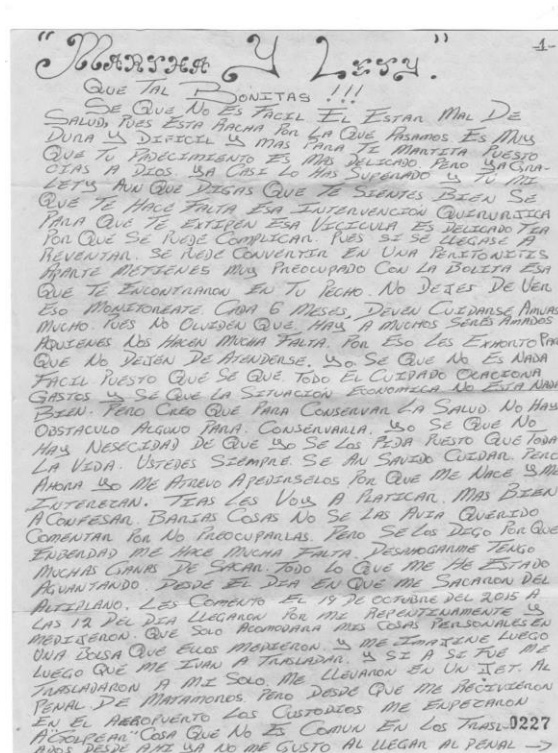 "MARTHA Y LETY."
1-
QUE TAL BONITAS !!!
SE QUE NO ES FACIL EL ESTAR MAL DE
SALUD, PUES ESTA RACHA POR LA QUE PASAMOS ES MUY
DURA Y DIFICIL Y MAS PARA TI MARTITA PUESTO
QUE TU PADECIMIENTO ES MAS DELICADO. PERO YA GRA-
CIAS A DIOS. YA CASI LO HAS SUPERADO Y TU MI
LETY AUN QUE DIGAS QUE TE SIENTES BIEN SE
QUE TE HACE FALTA ESA INTERVENCION QUIRURJICA
PARA QUE TE EXTIPEN ESA VICICULA ES DELICADO TIA
POR QUE SE PUEDE COMPLICAR. PUES SI SE LLEGASE A
REVENTAR. SE PUEDE CONVERTIR EN UNA PERITONITIS
APARTE METIENES MUY PREOCUPADO CON LA BOLITA ESA
QUE TE ENCONTRARON EN TU PECHO. NO DEJES DE VER
ESO MONITOREATE. CADA 6 MESES, DEVEN CUIDARSE AMVAS
MUCHO. PUES NO OLVIDEN QUE. HAY A MUCHOS SERES AMADOS
AQUIENES NOS HACEN MUCHA FALTA. POR ESO LES EXHORTO PARA
QUE NO DEJEN DE ATENDERSE. YO SE QUE NO ES NADA
FACIL PUESTO QUE SE QUE TODO EL CUIDADO OCACIONA
GASTOS Y SE QUE LA SITUACION ECONOMICA NO ESTA NADA
BIEN. PERO CREO QUE PARA CONSERVAR LA SALUD. NO HAY
OBSTACULO ALGUNO PARA. CONSERVARLA. YO SE QUE NO
HAY NESECIDAD DE QUE YO SE LOS PIDA PUESTO QUE TODA
LA VIDA. USTEDES SIEMPRE. SE AN SAVIDO CUIDAR. PERO
AHORA YO ME ATREVO APEDIRSELOS POR QUE ME NACE Y ME
INTERESAN. TIAS LES VOY A PLATICAR. MAS BIEN
ACONFESAR. BARIAS COSAS NO SE LAS AVIA QUERIDO
COMENTAR POR NO PREOCUPARLAS. PERO SE LOS DIGO POR QUE
ENBERDAD ME HACE MUCHA FALTA. DESAHOGARME TENGO
MUCHAS GANAS DE SACAR. TODO LO QUE ME HE ESTADO
AGUANTANDO. DESDE EL DIA EN QUE ME SACARON DEL
ALTIPLANO. LES COMENTO EL 19 DE OCTUBRE DEL 2015 A
LAS 12 DEL DIA LLEGARON POR MI REPENTINAMENTE Y
MEDIJERON. QUE SOLO ACOMODARA MIS COSAS PERSONALES EN
UNA BOLSA QUE ELLOS MEDIERON. Y ME IMAJINE LUEGO
LUEGO QUE ME IVAN A TRASLADAR. Y SI A SI FUE ME
TRASLADARON A MI SOLO. ME LLEVARON EN UN JET. AL
PENAL. DE MATAMOROS. PERO DESDE QUE ME RECIVIERON
EN EL AEROPUERTO LOS CUSTODIOS ME ENPEZARON
A "GOLPEAR" COSA QUE NO ES COMUN EN LOS TRASL-
0227
ADOS DESDE AHI YA NO ME GUSTO AL LLEGAR AL PENAL →